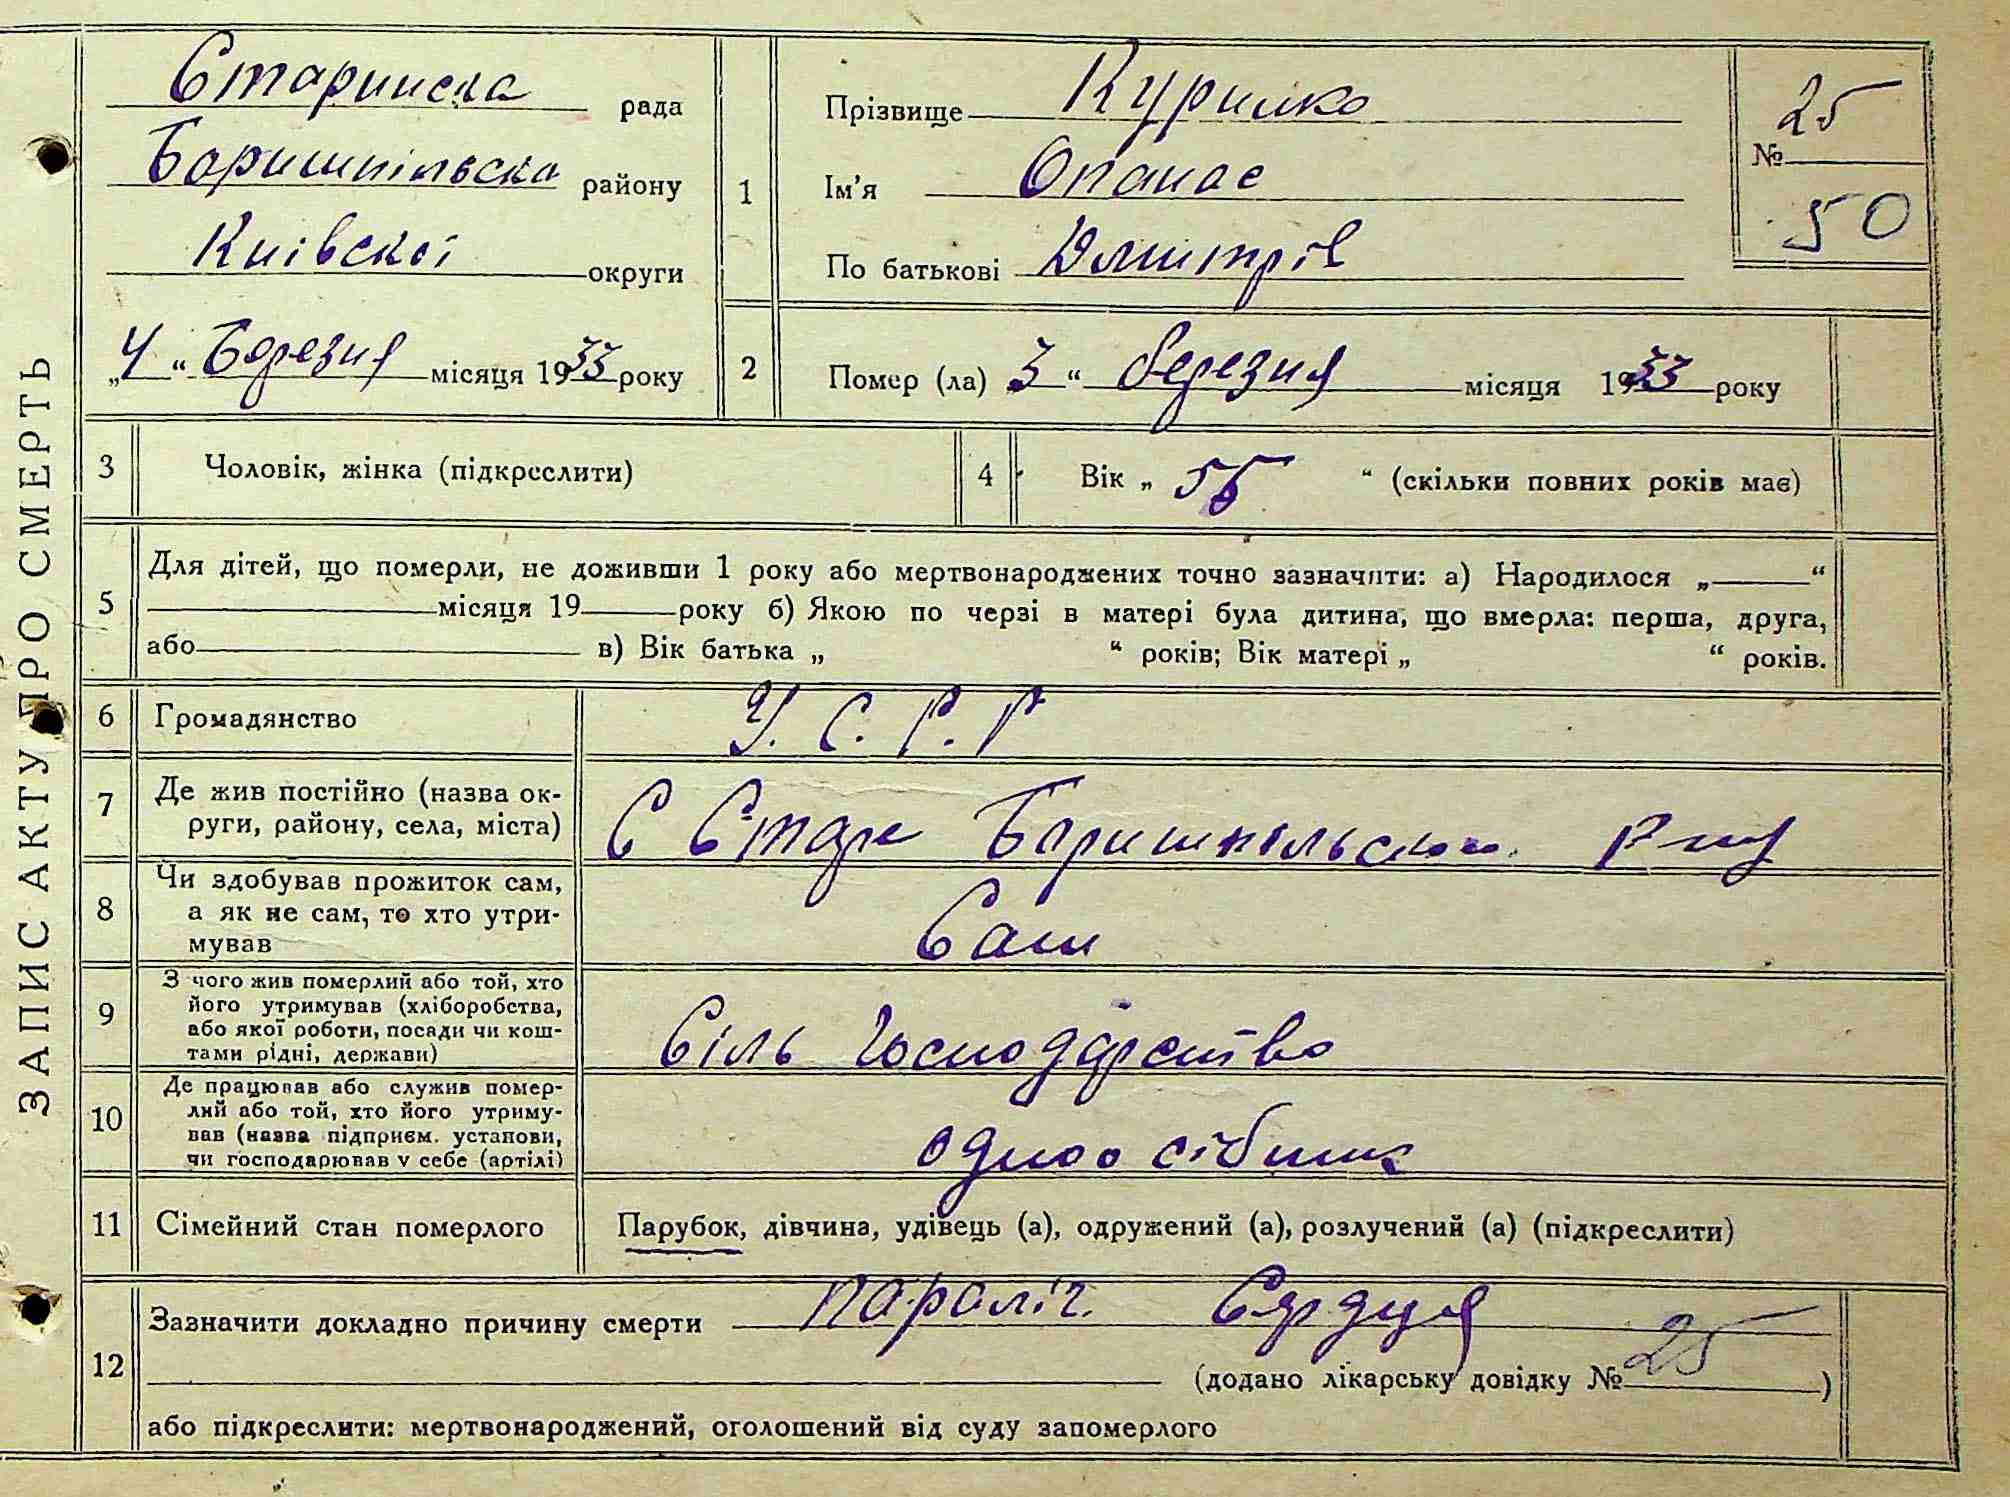 ЗАПИС АКТУ ПРО СМЕРТЬ
Старинска рада
Баришпільська району
Київскої округи
„4“ Березня місяця 1933 року
1
Прізвище Курилко
Ім'я Опанас
По батькові Дмитрів
№ 25
50
2
Помер (ла) 3 “ березня місяця 1933 року
3 Чоловік, жінка (підкреслити)
4 Вік „ 55 “ (скільки повних років має)
5
Для дітей, що померли, не доживши 1 року або мертвонароджених точно зазначити: а) Народилося „ “
місяця 19 року б) Якою по черзі в матері була дитина, що вмерла: перша, друга,
або в) Вік батька „ “ років; Вік матері „ “ років.
6 Громадянство У. С. Р. Р
7 Де жив постійно (назва ок-
руги, району, села, міста)
С Старе Баришпільськ. Р-ну
8 Чи здобував прожиток сам,
а як не сам, то хто утри-
мував
Сам
9 З чого жив померлий або той, хто
його утримував (хліборобства,
або якої роботи, посади чи кош-
тами рідні, держави)
Сіль Господарство
10 Де працював або служив помер-
лий або той, хто його утриму-
вав (назва підприєм. установи,
чи господарював у себе (артілі)
одноосібник
11 Сімейний стан померлого Парубок, дівчина, удівець (а), одружений (а), розлучений (а) (підкреслити)
12
Зазначити докладно причину смерти параліч. Сердця
(додано лікарську довідку № 25 )
або підкреслити: мертвонароджений, оголошений від суду запомерлого